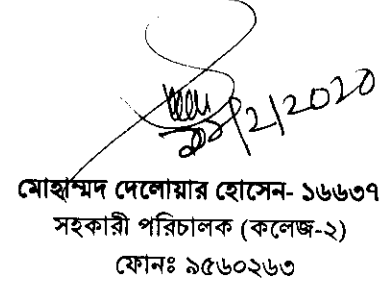 /2/2020
মোহাম্মদ দেলোয়ার হোসেন- ১৬৬৩৭
সহকারী পরিচালক (কলেজ-২)
ফোনঃ ৯৫৬০২৬৩